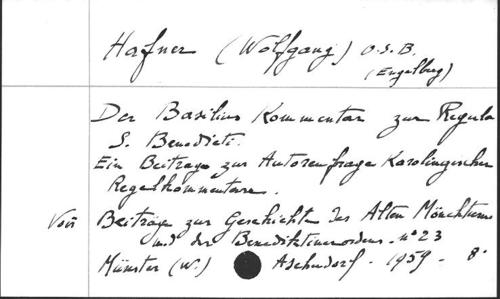 Hafner (Wolfgang) O.S.B.
(Engelberg)
Der Basilius Kommentar zur Regula
S. Benedicti.
Ein Beitrage zur Autorenfrage Karolingischer
Regelkommentare.
Beiträge zur Geschichte des Alten Mönchtums
und des Benediktinerordens. n° 23
Münster (W.) Aschendorf - 1959 - 8°